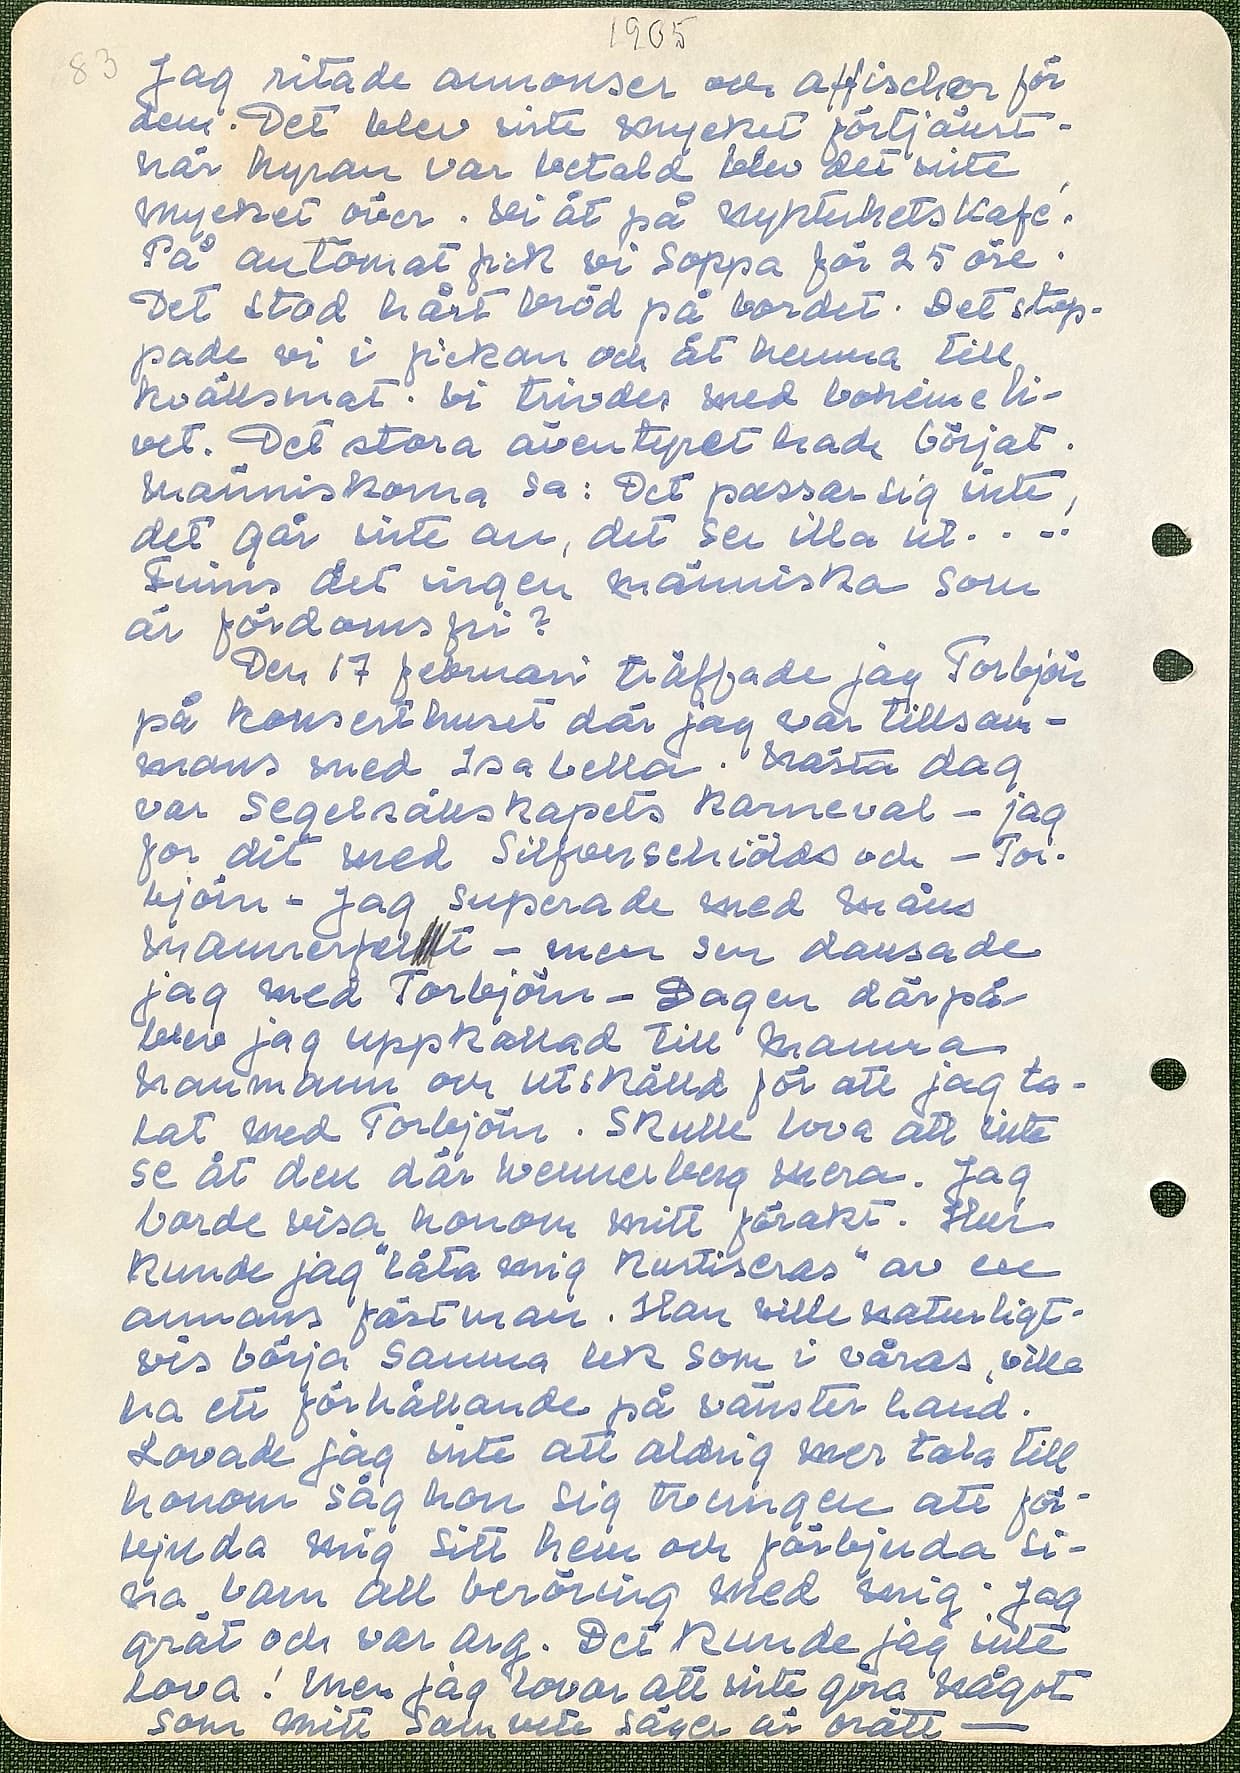 1905
83
Jag ritade annonser och affischer för
dem. Det blev inte mycket förtjänst -
när hyran var betald blev det inte
mycket över. Vi åt på nykterhetskafé.
På automat fick vi soppa för 25 öre.
Det stod hårt bröd på bordet. Det stop-
pade vi i fickan och åt hemma till
kvällsmat. Vi trivdes med bohemeli-
vet. Det stora äventyret hade börjat.
Människorna sa: Det passar sig inte,
det går inte an, det ser illa ut. . . -!
Finns det ingen människa som
är fördomsfri?
Den 17 februari träffade jag Torbjörn
på konserthuset där jag var tillsam-
mans med Isabella. Nästa dag
var Segelsällskapets karneval - jag
for dit med Silfverschiölds och - Tor-
björn - Jag superade med Måns
Mannerfelt - men sen dansade
jag med Torbjörn - Dagen därpå
blev jag uppkallad till Mamma
Naumann och utskälld för att jag ta-
lat med Torbjörn. Skulle lova att inte
se åt den där Wennerberg mera. Jag
borde visa honom mitt förakt. Hur
kunde jag "låta mig kurtiseras" av en
annans fästman. Han ville naturligt-
vis börja samma lek som i våras, ville
ha ett förhållande på vänster hand.
Lovade jag inte att aldrig mer tala till
honom såg hon sig tvungen att för-
bjuda mig sitt hem och förbjuda si-
na barn all beröring med mig. Jag
grät och var arg. Det kunde jag inte
lova! Men jag lovar att inte göra något
som mitt samvete säger är orätt —